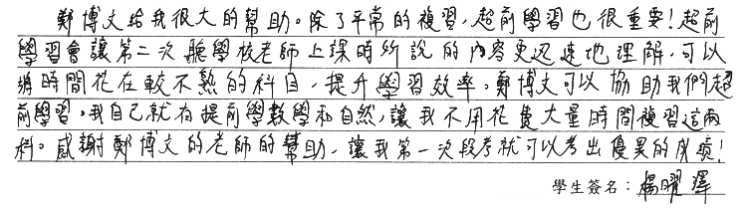 鄭博文給我很大的幫助。除了平常的複習，超前學習也很重要！超前
學習會讓第二次聽學校老師上課時所說的內容更迅速地理解，可以
將時間花在較不熟的科目，提升學習效率。鄭博文可以協助我們超
前學習，我自己就有提前學數學和自然，讓我不用花費大量時間複習這兩
科。感謝鄭博文的老師的幫助，讓我第一次段考就可以考出優異的成績！
學生簽名：楊曜澤